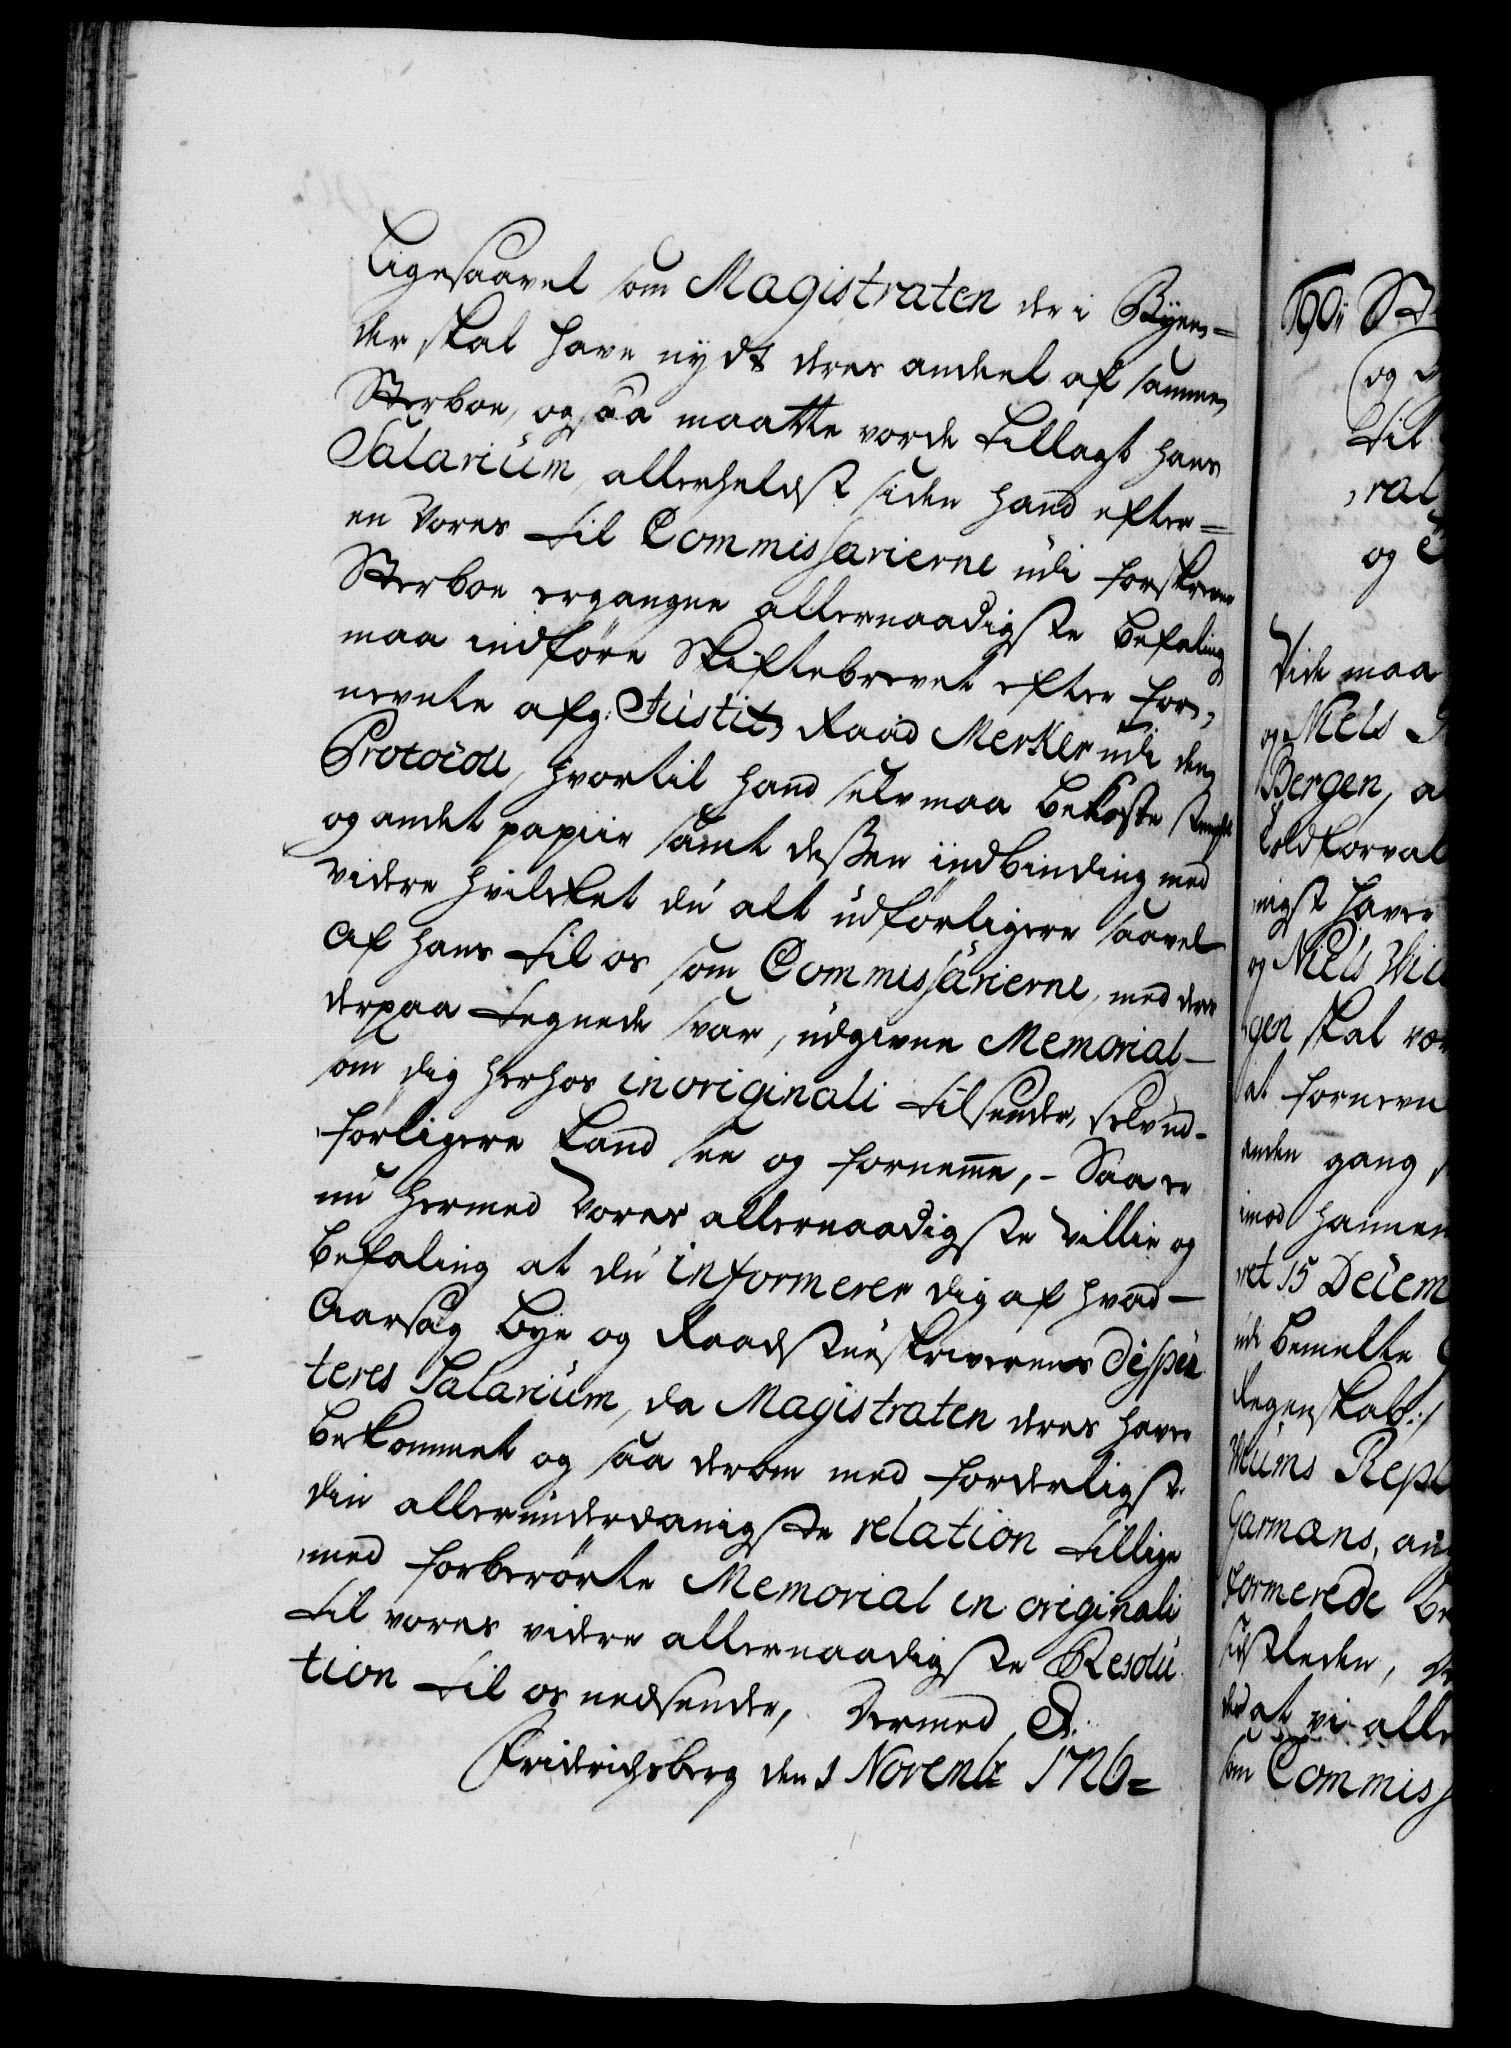 Ligesaavel som Magistraten der i Byen=
der skal have nydt deres andeel af samme
Sterboe, ogsaa maatte vorde tillagt hans
Salarium, allerhelst siden hand efter=
en Vores til Commissarierne udi forskrevne
Sterboe ergangne allernaadigste befaling
maa indføre Skiftebrevet efter for,
nevnte afg: Justitz Raad Merker udi den
Protocoll, hvortil hand selv maa bekoste stemplet
og andet papiir samt dessen indbinding med
videre hvilcket du alt udførligere saavel
af hans til os som Commissarierne, med deres
derpaa tegnede svar, udgivne Memorial
som dig herhos in originali tilsendes, self ud-
førligere kand see og fornemme, - Saa er
nu hermed Vores allernaadigste villie og
befaling at du informerer dig af hvad
Aarsag bye og Raadstueskriverens dispu
teres Salarium, da Magistraten deres haver
bekommet og saa derom med forderligst
din allerunderdanigste relation tillige
med forberørte Memorial in originali
til vores videre allernaadigste Resolu
tion til os nedsender, Dermed S.
Fridrichsberg den 1 Novembr 1726=
190:
og
til
ral
og
Vide maa
og Niels
Bergen, a
Toldforval
nigst haver
og Niels Wi
gen skal vær
at fornevn
anden gang
imod hannem
vet 15 Decem
udi bemelte
Regenskab:/
Wiums Repl
Garmans, an
formerede be
sidstleden,
at vi alle
som Commiss